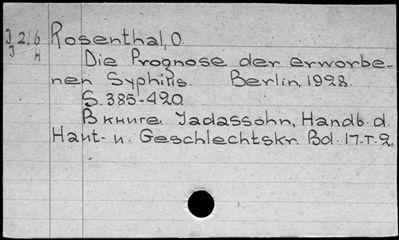 J 2/6 Rosenthal, O.
J H Die Prognose der erworbe-
nen Syphilis. Berlin, 1928.
S. 385-420
В книге Jadassohn, Handb. d.
Haut- u. Geschlechtskr. Bd. 17. T. 2.